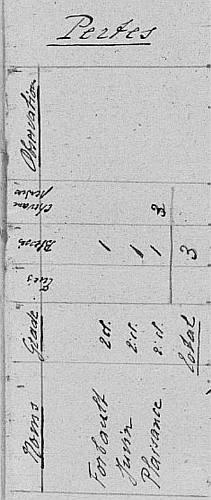 Pertes
Noms Grade Tués Blessés Chevaux perdus Observations
Forbault 2cl. 1
Jurin 2cl. 1
Plaisance 2cl. 1 3
Total 3